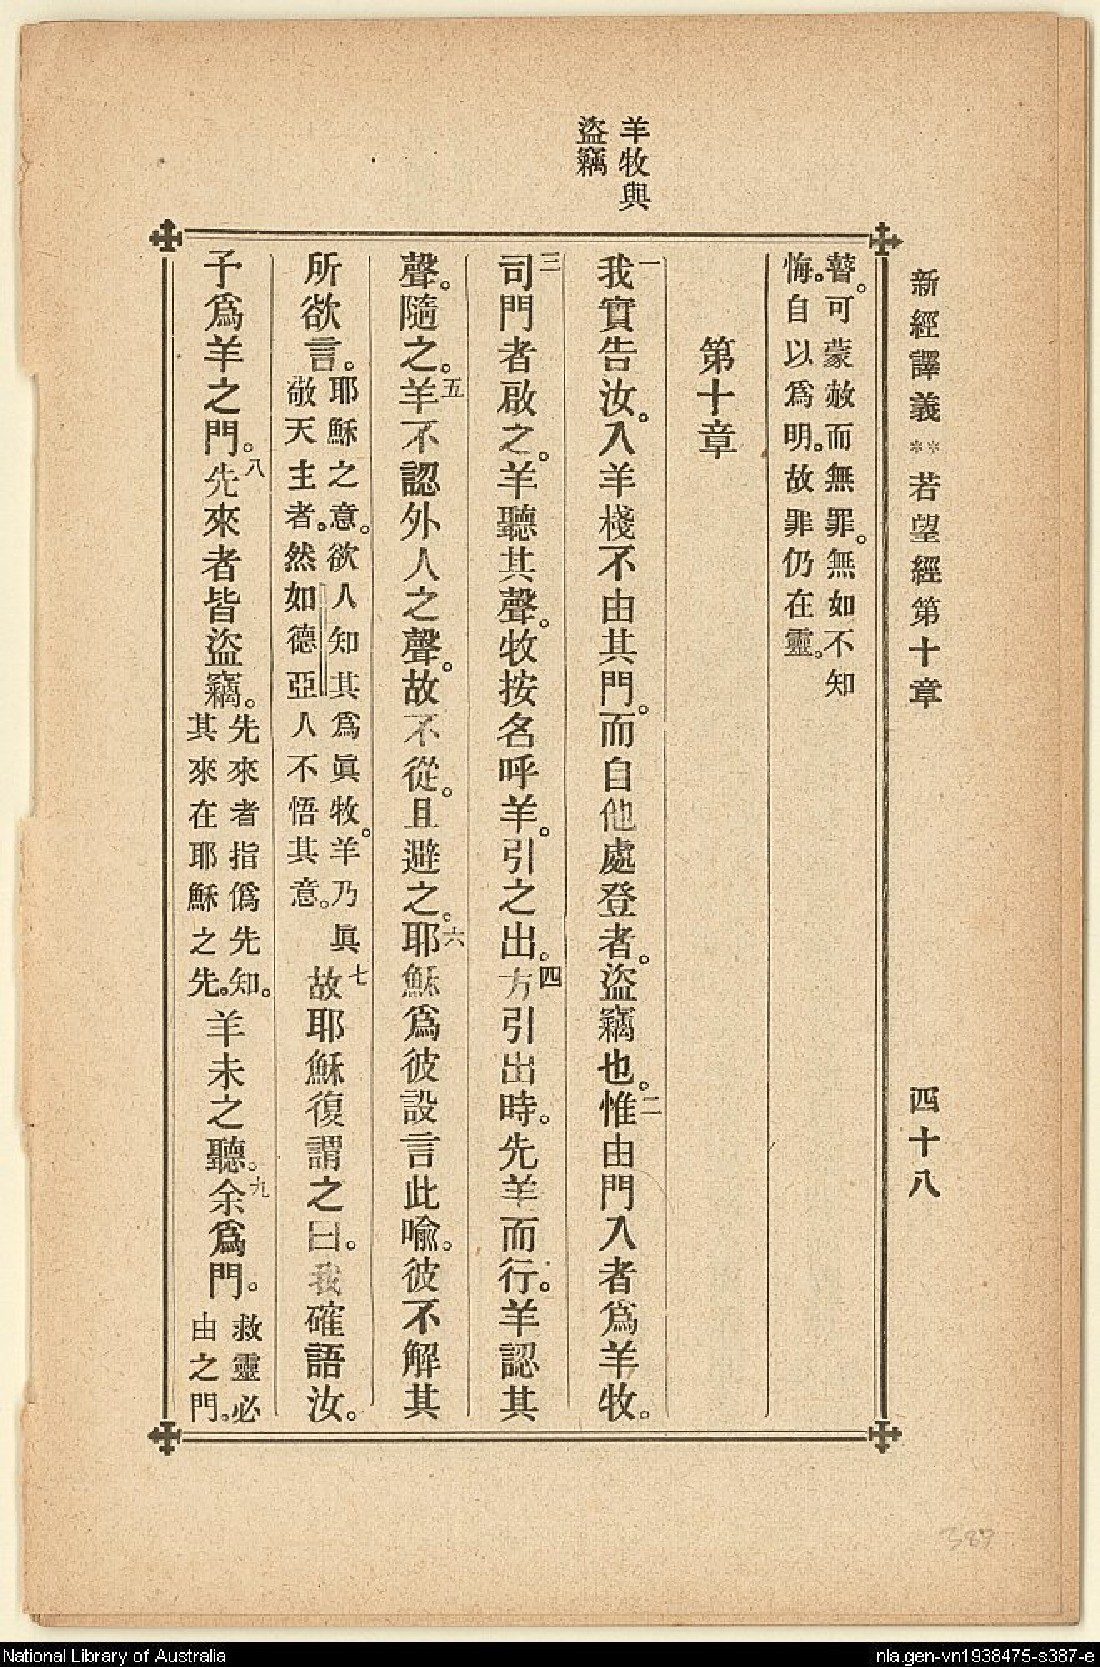 新經譯義**若望經第十章 四十八
羊牧與
盜竊
瞽。可蒙赦而無罪。無如不知
悔。自以為明。故罪仍在靈。
第十章
一我實告汝。入羊棧不由其門。而自他處登者。盜竊也。二惟由門入者爲羊牧。
三司門者啟之。羊聽其聲。牧按名呼羊。引之出。四方引出時。先羊而行。羊認其
聲。隨之。五羊不認外人之聲。故不從。且避之。六耶穌爲彼設言此喻。彼不解其
所欲言。
耶穌之意。欲人知其爲眞牧。羊乃眞
敬天主者。然如德亞人不悟其意。
七故耶穌復謂之曰。我確語汝。
予爲羊之門。八先來者皆盜竊。
先來者指僞先知。
其來在耶穌之先。
羊未之聽。九余爲門。
救靈必
由之門。
387
National Library of Australia
nla.gen-vn1938475-s387-e